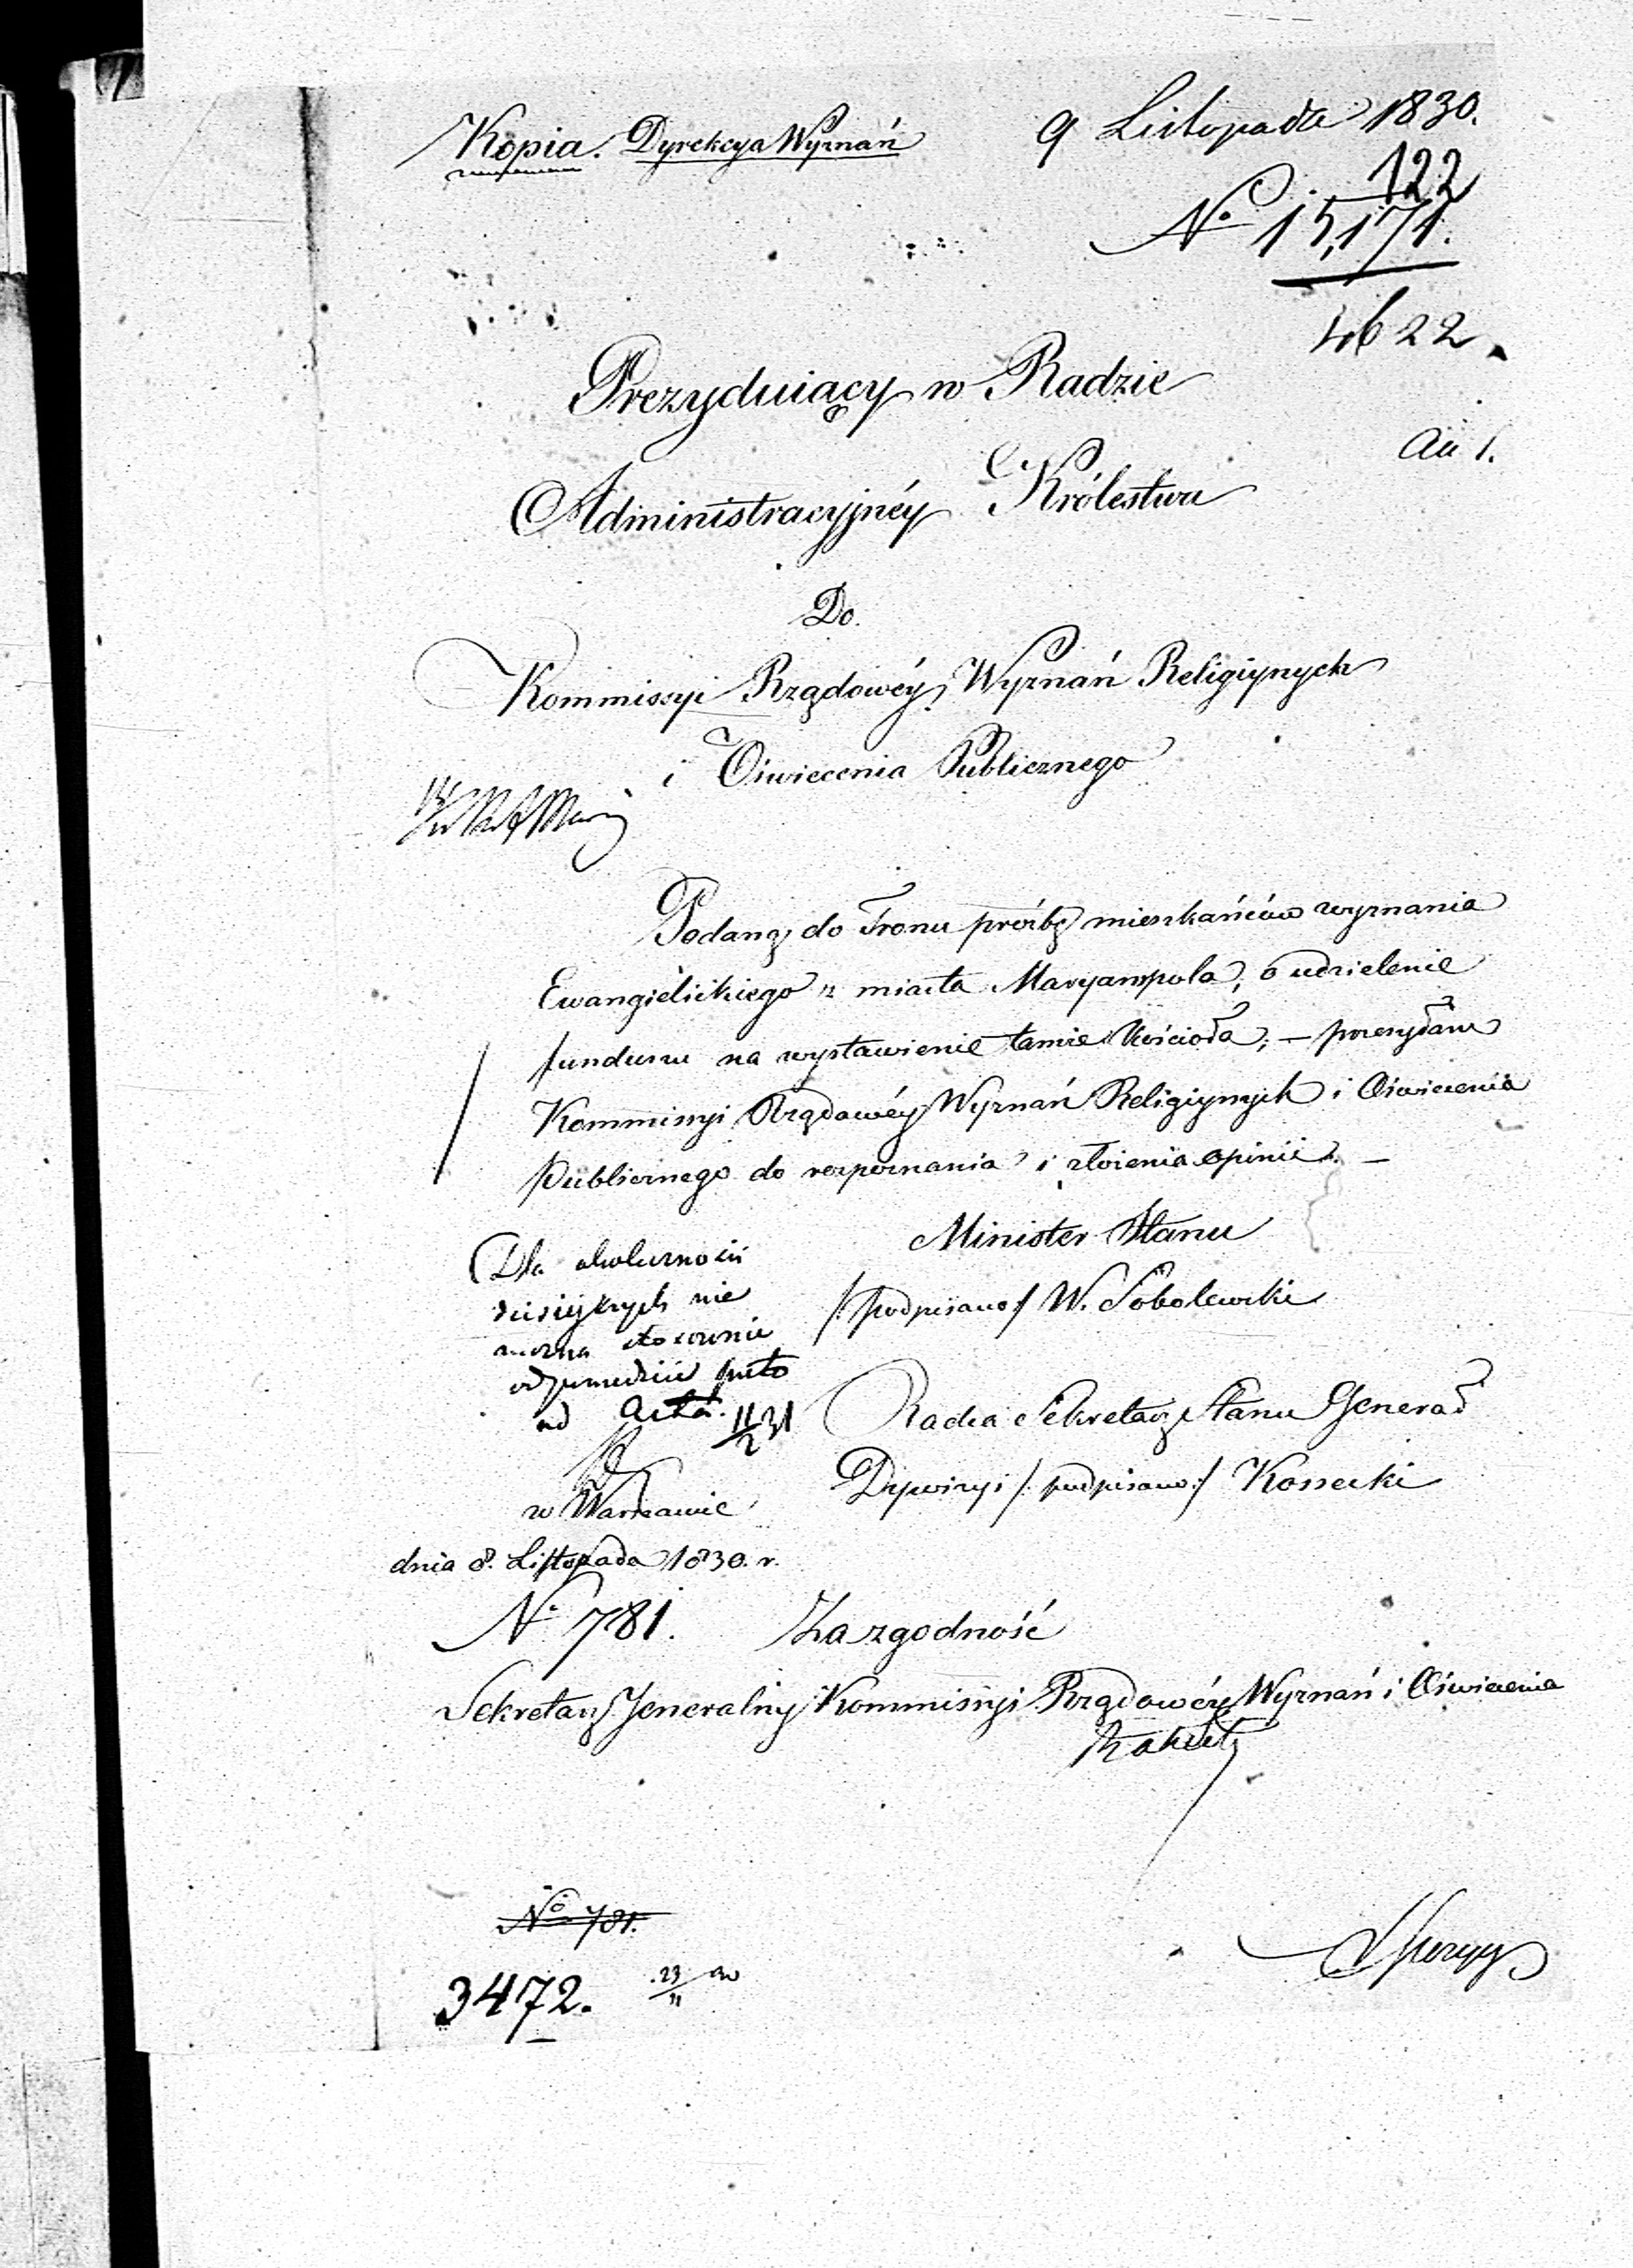 Kopia. Dyrekcya Wyznań
9 Listopada 1830.
122
No 15,171.
4622.
Prezyduiący w Radzie
Administracyjnéy Królestwa
Do
Kommissyi Rządowéy Wyznań Religiynych
i Oświecenia Publicznego
Podaną do Tronu prośbę mieszkańców wyznania
Ewangielickiego z miasta Maryampola, o udzielenie
funduszu na wystawienie tamże Kościoła; — przesyłam
Kommissyi Rządowéy Wyznań Religiynych i Oświecenia
Publicznego do rozpoznania i złożenia opinii. —
Minister Stanu
/:podpisano:/ W. Sobolewski
Radca Sekretarz Stanu Generał
Dywizyi /:podpisano:/ Kossecki
Dla okoliczności
dzisieyszych nie
można stosownie
odpowiedzieć przeto
ad Acta. 11/2 31
w Warszawie
dnia 8. Listopada 1830. r.
No 781.
Za zgodność
Sekretarz Jeneralny Kommissyi Rządowéy Wyznań i Oświecenia
No 781.
3472. 23/11